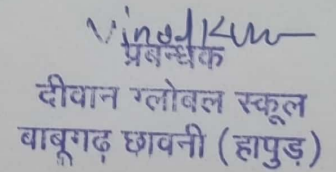 Vinod Kum
प्रबन्धक
दीवान ग्लोबल स्कूल
बाबूगढ़ छावनी (हापुड़)